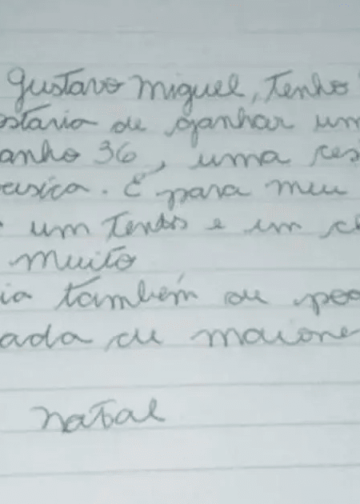 Gustavo Miguel, Tenho
ostaria de ganhar um
anho 36, uma ces
asica. É para meu
um Tenis e um c
muito
ia também de pe
ada de maione
natal